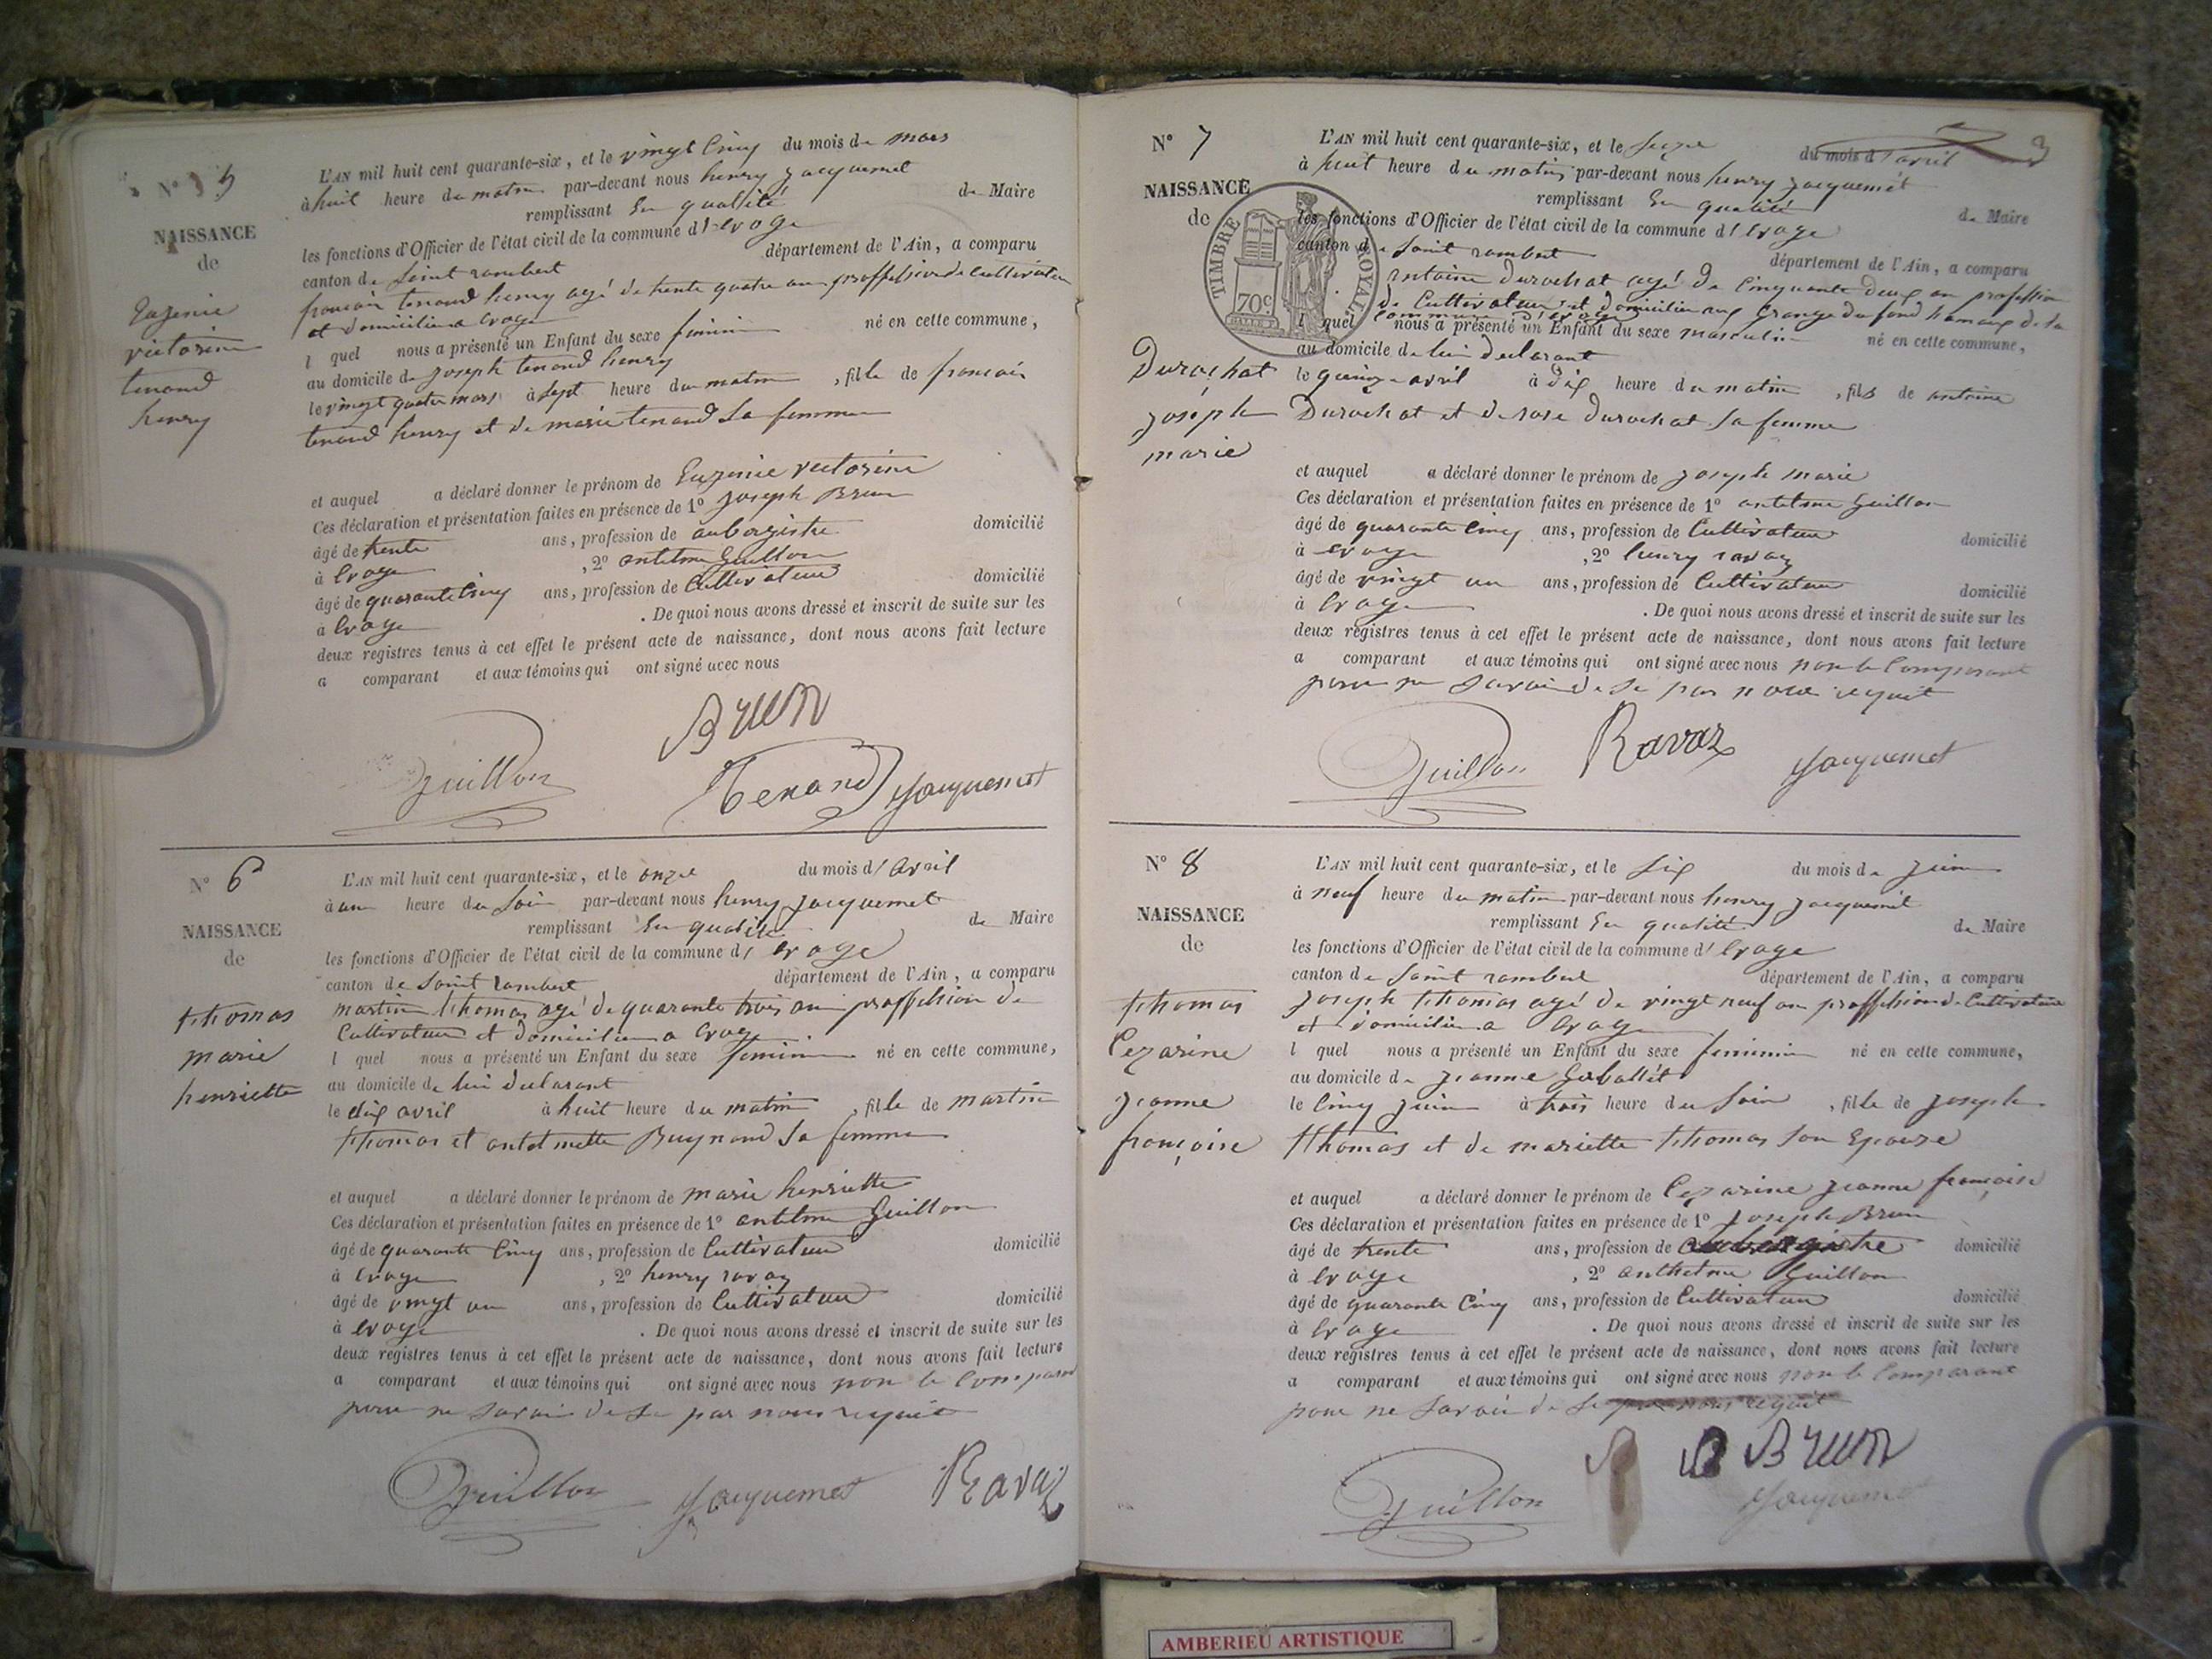 N° 5
NAISSANCE
de
Eugenie
victorine
tenand
henry
L'AN mil huit cent quarante-six, et le vingt Cinq du mois de mars
à huit heure du matin par-devant nous henry jacquemet
remplissant En qualité de Maire
les fonctions d'Officier de l'état civil de la commune d'Evoge
canton de Saint rambert département de l'Ain, a comparu
francois tenand henry agé de trente quatre ans proffession de Cultivateur
et domicilié a Evoge
l quel nous a présenté un Enfant du sexe feminin né en cette commune,
au domicile de joseph tenand henry
le vingt quatre mars à Sept heure du matin, fille de francois
tenand henry et de marie tenand Sa femme
et auquel a déclaré donner le prénom de Eugenie victorine
Ces déclaration et présentation faites en présence de 1° joseph Brun
âgé de trente ans, profession de aubergistre domicilié
à Evoge, 2° antelme Guillon
âgé de quarante Cinq ans, profession de Cultivateur domicilié
à Evoge. De quoi nous avons dressé et inscrit de suite sur les
deux registres tenus à cet effet le présent acte de naissance, dont nous avons fait lecture
a comparant et aux témoins qui ont signé avec nous
Brun
Guillon Tenand Jacquemet
N° 6
NAISSANCE
de
thomas
marie
henriette
L'AN mil huit cent quarante-six, et le onze du mois d'avril
à une heure du Soir par-devant nous henry jacquemet
remplissant En qualité de Maire
les fonctions d'Officier de l'état civil de la commune d'Evoge
canton de Saint rambert département de l'Ain, a comparu
martin thomas agé de quarante trois ans proffession de
Cultivateur et domicilié a Evoge
l quel nous a présenté un Enfant du sexe feminin né en cette commune,
au domicile de lui declarant
le dix avril à huit heure du matin, fille de martin
thomas et antelmette Buynand Sa femme
et auquel a déclaré donner le prénom de marie henriette
Ces déclaration et présentation faites en présence de 1° antelme Guillon
âgé de quarante Cinq ans, profession de Cultivateur domicilié
à Evoge, 2° henry ravaz
âgé de vingt un ans, profession de Cultivateur domicilié
à Evoge. De quoi nous avons dressé et inscrit de suite sur les
deux registres tenus à cet effet le présent acte de naissance, dont nous avons fait lecture
a comparant et aux témoins qui ont signé avec nous non le Comparant
pour ne Savoir de Se par nous requit
Guillon Jacquemet Ravaz
3
N° 7
NAISSANCE
de
TIMBRE ROYAL
70c
Durochat
joseph
marie
L'AN mil huit cent quarante-six, et le Seize du mois d'avril
à huit heure du matin par-devant nous henry jacquemet
remplissant En qualité de Maire
les fonctions d'Officier de l'état civil de la commune d'Evoge
canton de Saint rambert département de l'Ain, a comparu
antoine Durochat agé de Cinquante deux an profession
de Cultivateur et domicilié aux Grange du fond hameau de la
Commune d'Evoge
l quel nous a présenté un Enfant du sexe masculin né en cette commune,
au domicile de lui declarant
le quinze avril à dix heure du matin, fils de antoine
Durochat et de rose Durochat Sa femme
et auquel a déclaré donner le prénom de joseph marie
Ces déclaration et présentation faites en présence de 1° antelme Guillon
âgé de quarante Cinq ans, profession de Cultivateur domicilié
à Evoge, 2° henry ravaz
âgé de vingt un ans, profession de Cultivateur domicilié
à Evoge. De quoi nous avons dressé et inscrit de suite sur les
deux registres tenus à cet effet le présent acte de naissance, dont nous avons fait lecture
a comparant et aux témoins qui ont signé avec nous non le Comparant
pour ne Savoir de Se par nous requit
Guillon Ravaz Jacquemet
N° 8
NAISSANCE
de
thomas
Cezarine
jeanne
françoise
L'AN mil huit cent quarante-six, et le Six du mois de juin
à neuf heure du matin par-devant nous henry jacquemet
remplissant En qualité de Maire
les fonctions d'Officier de l'état civil de la commune d'Evoge
canton de Saint rambert département de l'Ain, a comparu
joseph thomas agé de vingt neuf an proffession de Cultivateur
et domicilié a Evoge
l quel nous a présenté un Enfant du sexe feminin né en cette commune,
au domicile de jeanne
le Cinq juin à trois heure du Soir, fille de joseph
thomas et de mariette thomas Son Epouze
et auquel a déclaré donner le prénom de Cezarine jeanne françoise
Ces déclaration et présentation faites en présence de 1° joseph Brun
âgé de trente ans, profession de aubergistre domicilié
à Evoge, 2° anthelme Guillon
âgé de quarante Cinq ans, profession de Cultivateur domicilié
à Evoge. De quoi nous avons dressé et inscrit de suite sur les
deux registres tenus à cet effet le présent acte de naissance, dont nous avons fait lecture
a comparant et aux témoins qui ont signé avec nous non le Comparant
pour ne Savoir de Se par nous requit
Guillon B B Brun
Jacquemet
AMBERIEU ARTISTIQUE